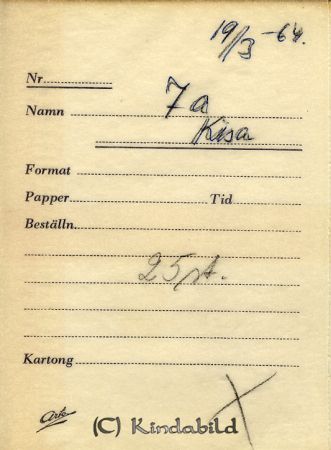 19/3 -64.
Nr
Namn 7a
Kisa
Format
Papper Tid
Beställn.
25 st.
Kartong
Ark
(C) Kindabild